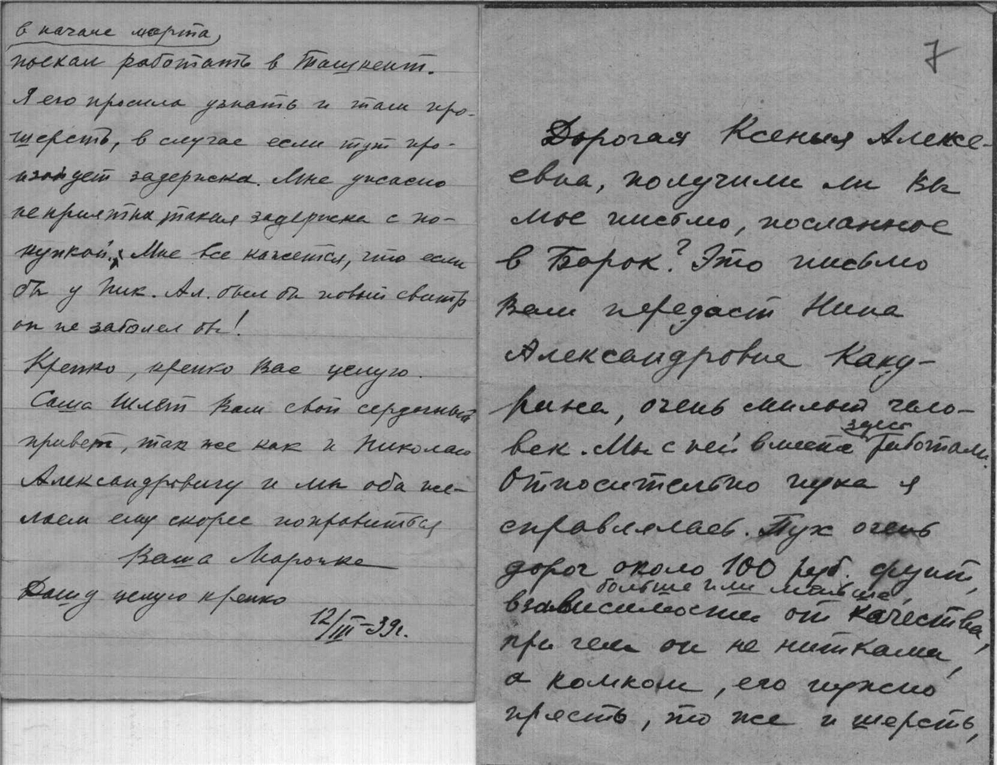 7
Дорогая Ксения Алексе-
евна, получили ли Вы
мое письмо, посланное
в Борок? Это письмо
Вам передаст Нина
Александровна Каку-
рина, очень милый чело-
век. Мы с ней вместе здесь работали.
Относительно пуха я
справлялась. Пух очень
дорог около 100 руб. фунт,
больше или меньше,
в зависимости от качества,
при чем он не нитками,
а комком, его нужно
прясть, то же и шерсть,
в начале марта,
поехал работать в Ташкент.
Я его просила узнать и там про
шерсть, в случае если тут про-
изойдет задержка. Мне ужасно
неприятна такая задержка с по-
купкой. Мне все кажется, что если
бы у Ник. Ал. был бы новый свитр
он не заболел бы!
Крепко, крепко Вас целую.
Саша шлет Вам свой сердечный
привет, так же как и Николаю
Александровичу и мы оба же-
лаем ему скорее поправиться
Ваша Марочка
Дашу целую крепко
12/III-39г.